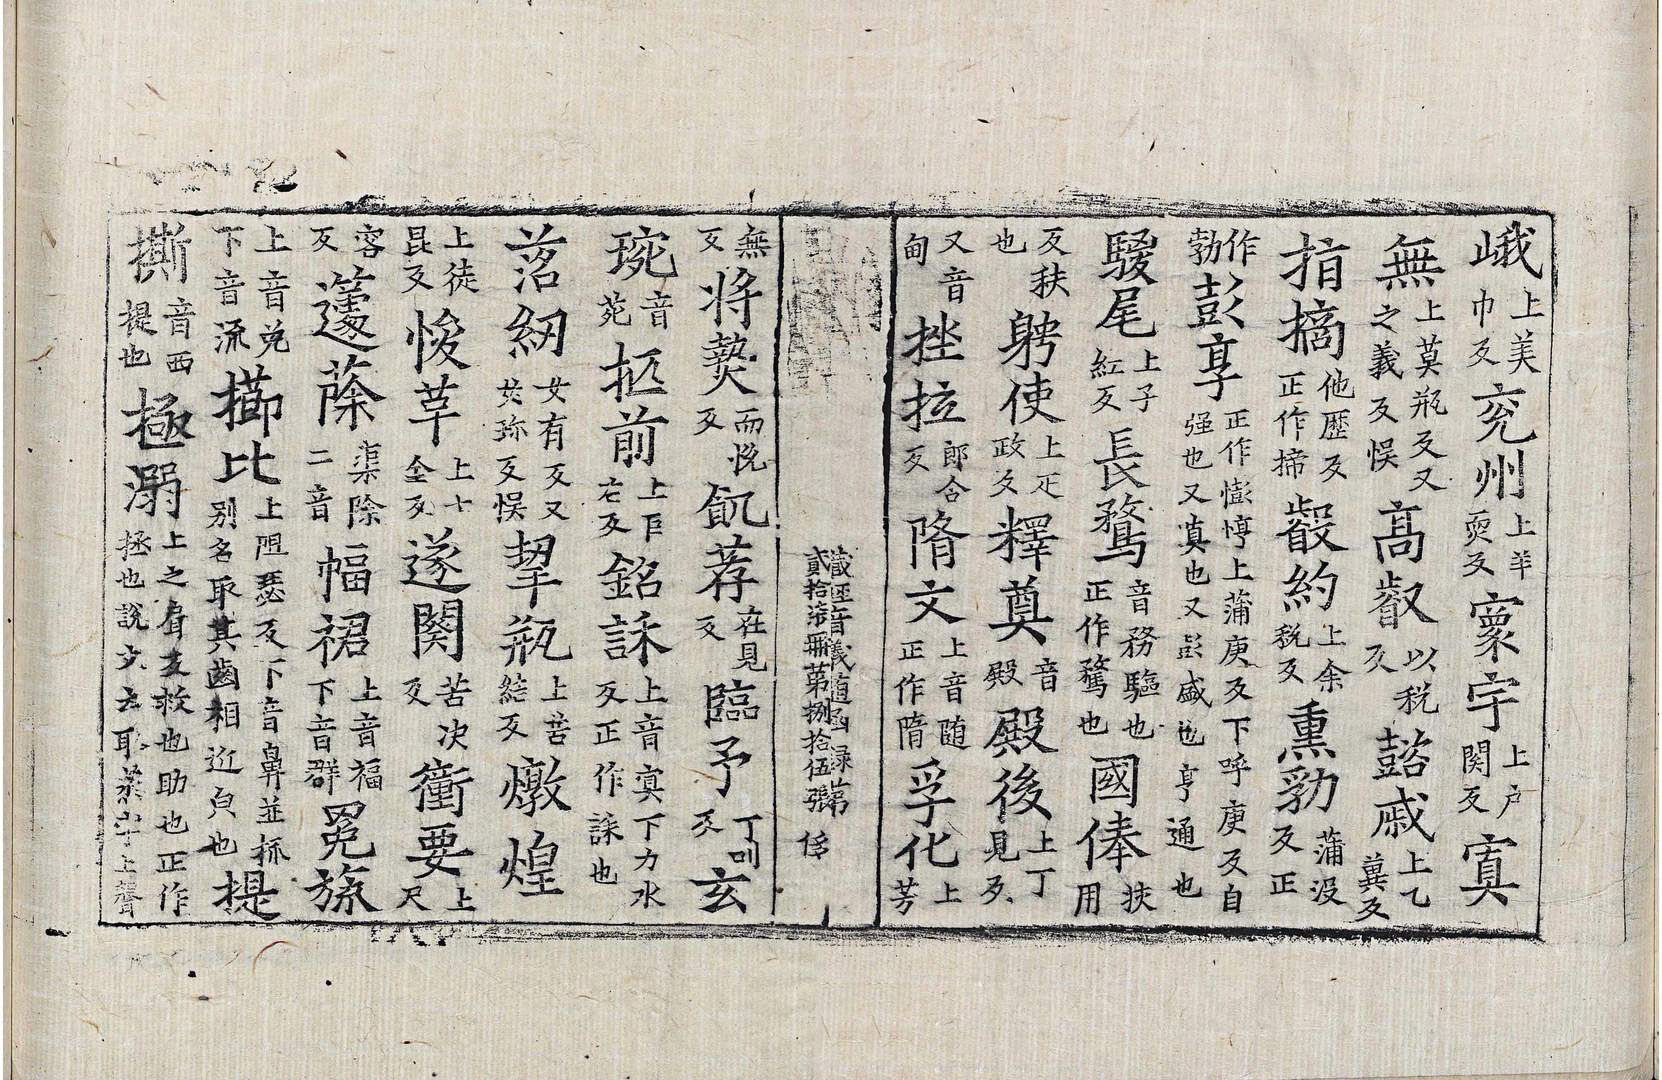 峨上美巾反兖州上羊奭反寰宇上戸関反寘
無上莫瓶反又之義反悮高叡以税反懿戚上乙兾反
指摘他歷反正作擿叡約上余税反熏勃蒲没反正
作勃彭亨正作憉悙上蒲庚反下呼庚反自强也又真也又彭盛也亨通也
騣尾上子紅反長騖音務驅也正作騖也國俸扶用
反秩也娉使上疋政反釋奠音殿殿後上丁見反
又音甸挫拉郎合反隋文上音随正作隋孚化上芳
藏経音義随函録第貳拾柒冊第捌拾伍張
無反將爇而悦反飢荐在見反臨予丁叫反玄
琬音苑抠前上巨右反銘誄上音寞下力水反正作誄也
落紉女有反又女珎反悮挈瓶上苦結反燉煌
上徒昆反悛革上七全反遂関苦决反衝要上尺
容反蘧蒢渠除二音幅裙上音福下音群冕旒
上音免下音流擳比上阻瑟反下音鼻並抓別名取其齒相近皃也提
撕音西提也極溺上之肩反救也助也正作拯也說文云取蒸字上聲